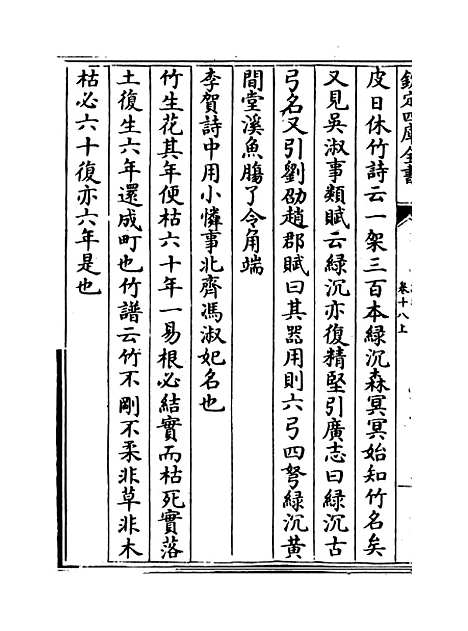 欽定四庫全書
卷十八上
皮日休竹詩云一架三百本綠沉森冥冥始知竹名矣
又見吳淑事類賦云綠沉亦復精堅引廣志曰綠沉古
弓名又引劉劭趙郡賦曰其器用則六弓四弩綠沉黃
間堂溪魚腸丁令角端
李賀詩中用小憐事北齊馮淑妃名也
竹生花其年便枯六十年一易根必結實而枯死實落
土復生六年還成町也竹譜云竹不剛不柔非草非木
枯必六十復亦六年是也